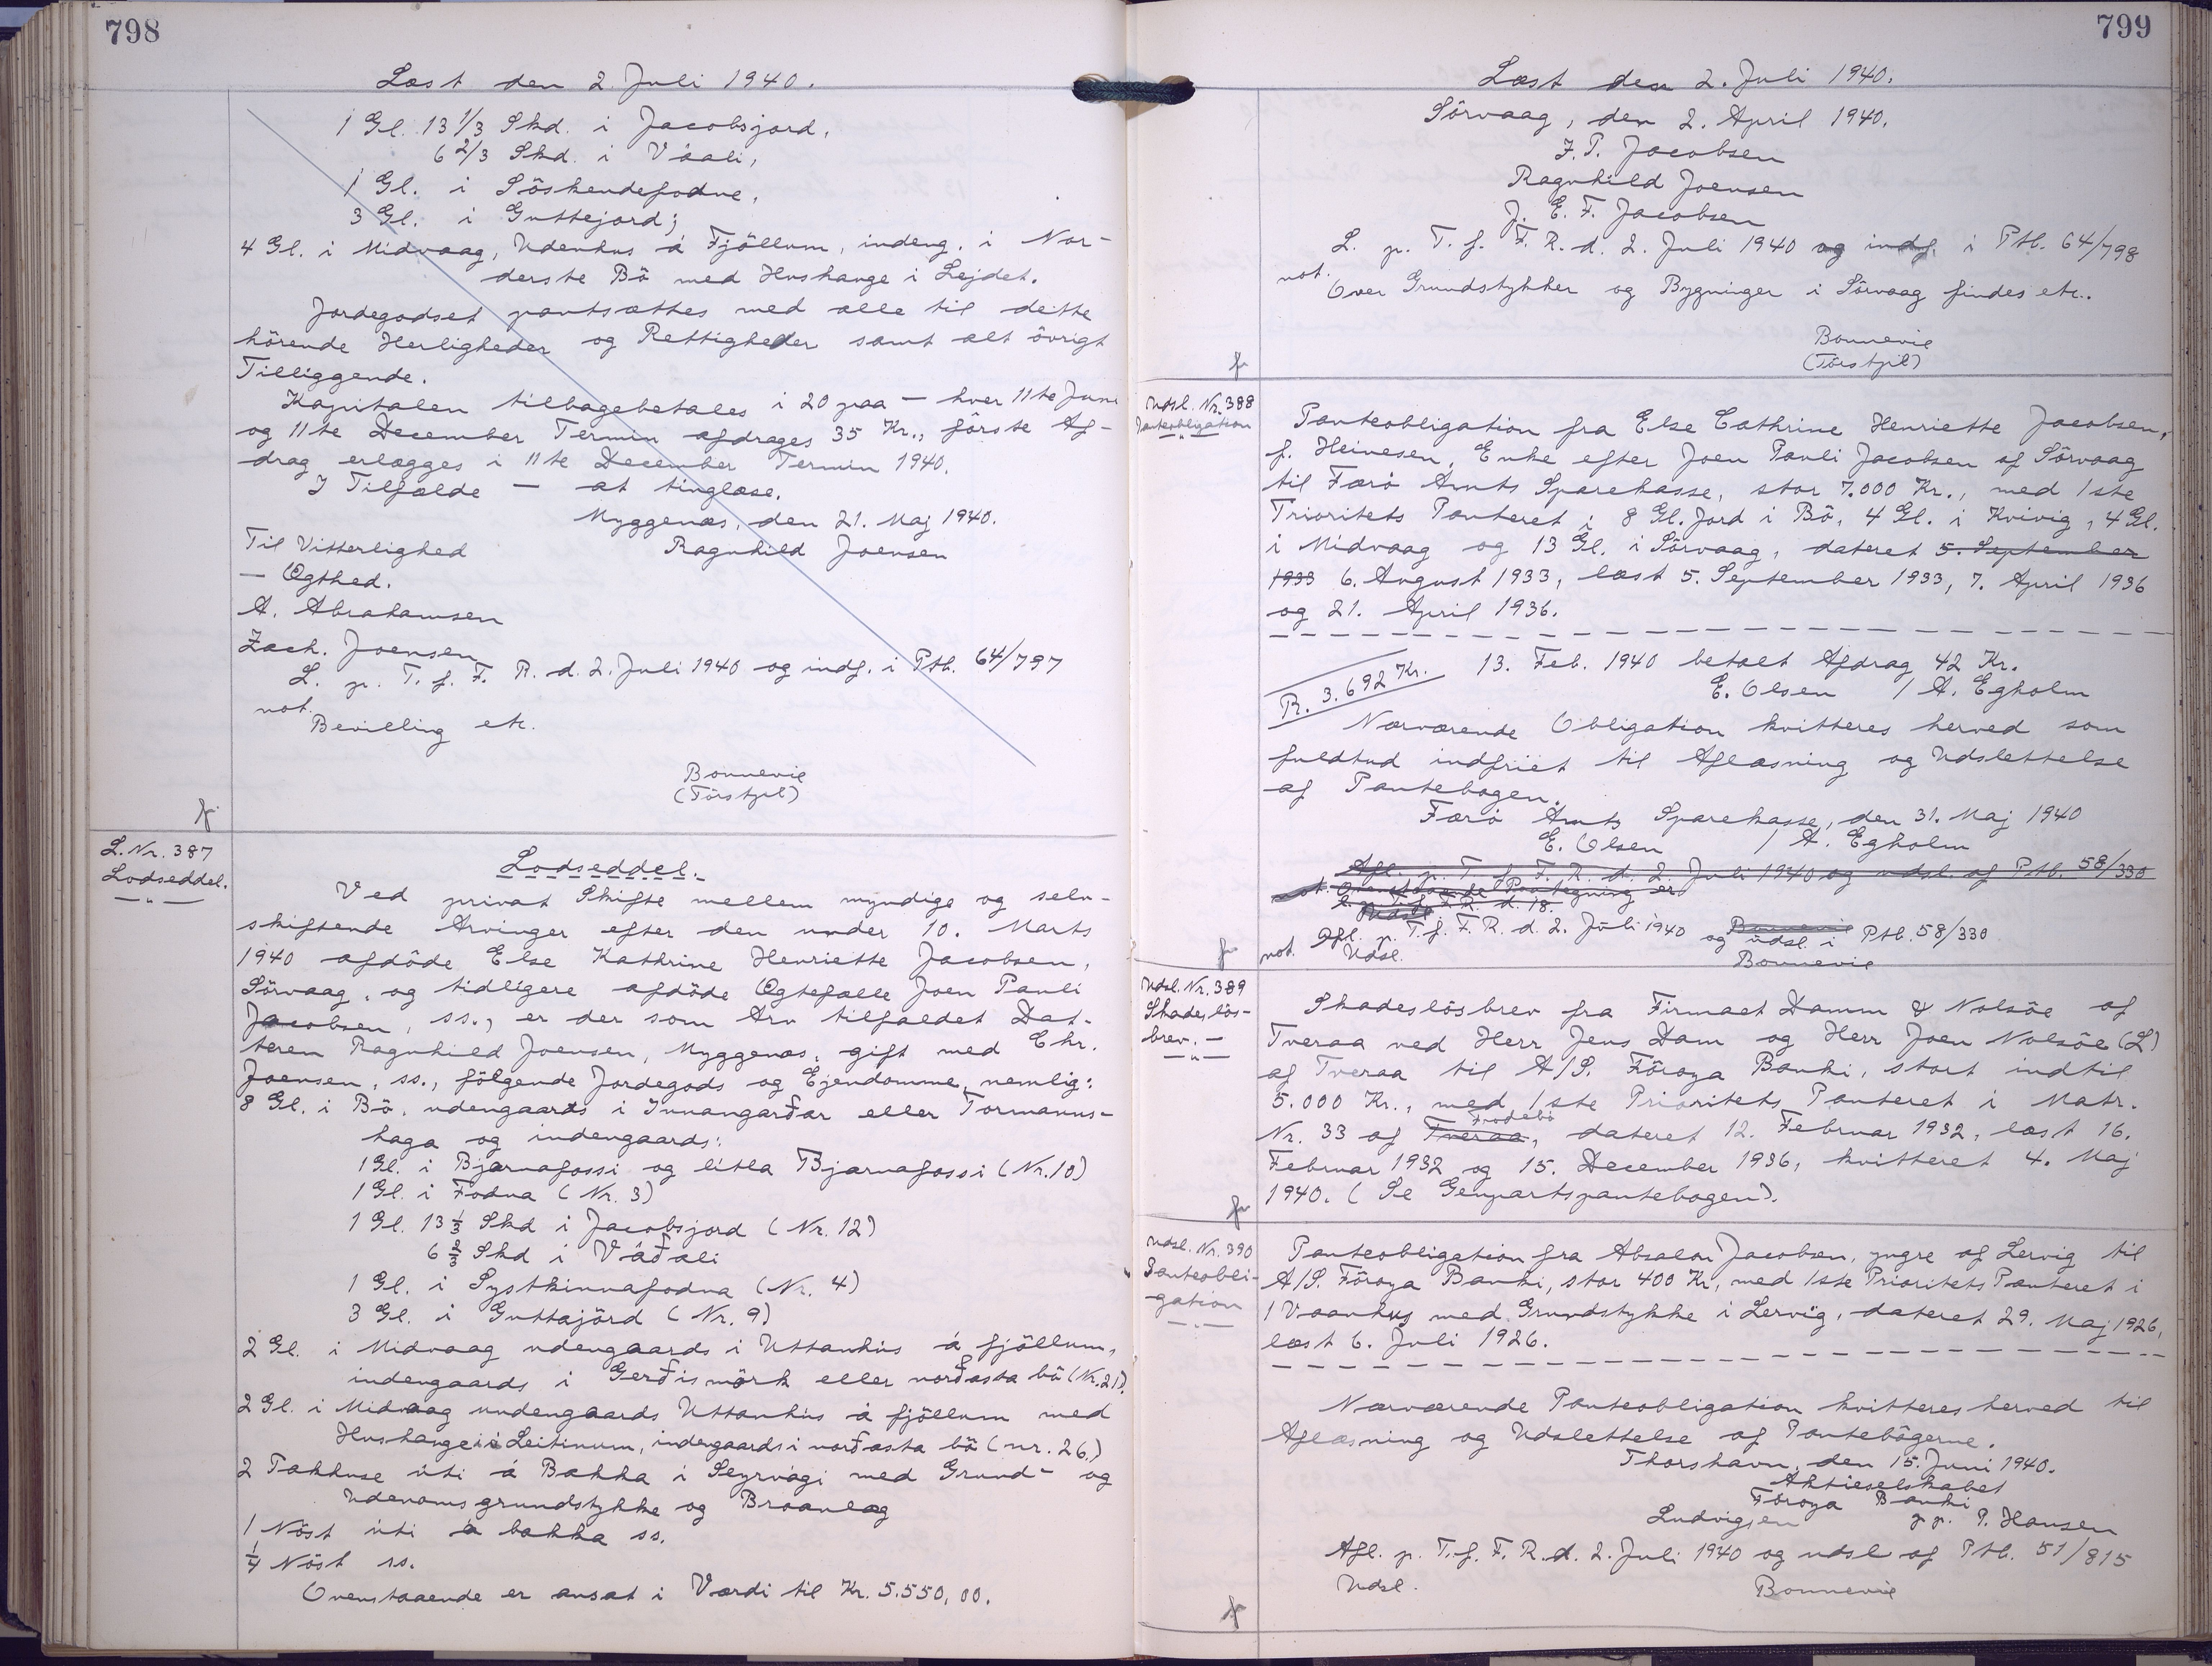 798
Læst den 2. Juli 1940.
1 Gl. 13 1/3 Skd. i Jacobsjord,
6 2/3 Skd. i Váali,
1 Gl. i Söskendefodne,
3 Gl. i Guttejord;
4 Gl. i Midvaag, Udenhus á Fjöllum, indeng. i Nor-
derste Bö med Hushauge i Lejdet.
Jordegodset pantsættes med alle til dette
hörende Herligheder og Rettigheder samt alt övrigt
Tilliggende.
Kapitalen tilbagebetales i 20 paa — hver 11te Juni
og 11te December Termin afdrages 35 Kr., förste Af-
drag erlægges i 11te December Termin 1940.
I Tilfælde — at tinglæse.
Myggenæs, den 21. Maj 1940.
Til Vitterlighed Ragnhild Joensen
— Ægthed.
A. Abrahamsen
Zach. Joensen
L. p. T. f. F. R. d. 2. Juli 1940 og indf. i Ptb. 64/797
not.
Bevilling etc.
Bonnevie
(Törstpil)
L. Nr. 387
Lodseddel.
Lodseddel.
Ved privat Skifte mellem myndige og selv-
skiftende Arvinger efter den under 10. Marts
1940 afdöde Else Kathrine Henriette Jacobsen,
Sörvaag, og tidligere afdöde Ægtefælle Joen Pauli
Jacobsen, ss., er der som Arv tilfaldet Dat-
teren Ragnhild Joensen, Myggenæs, gift med Chr.
Joensen, ss., fölgende Jordegods og Ejendomme, nemlig:
8 Gl. i Bö, udengaards i Innangarðar eller Tormanns-
haga og indengaards:
1 Gl. i Bjarnafossi og lítla Bjarnafossi (Nr. 10)
1 Gl. i Fodna (Nr. 3)
1 Gl. 13 1/3 Skd i Jacobsjord (Nr. 12)
6 2/3 Skd i Váðali
1 Gl. i Systkinnafodna (Nr. 4)
3 Gl. i Guttajörd (Nr. 9)
2 Gl. i Midvaag udengaards i Uttanhús á fjöllum,
indengaards i Gerðismörk eller norðasta bö (Nr. 21).
2 Gl. i Midvaag undengaards Uttanhús á fjöllum med
Hushauge i Leitinum, indengaards i norðasta bö (nr. 26.)
2 Pakhuse úti á Bakka i Seyrvági med Grund- og
Udenomsgrundstykke og Broanlæg
1 Nöst úti á bakka ss.
1/4 Nöst ss.
Ovenstaaende er ansat i Værdi til Kr. 5.550,00.
799
Læst den 2. Juli 1940.
Sörvaag, den 2. April 1940.
J. P. Jacobsen
Ragnhild Joensen
J. E. F. Jacobsen
L. p. T. f. F. R. d. 2. Juli 1940 og indf. i Ptb. 64/798
not.
Over Grundstykker og Bygninger i Sörvaag findes etc.
Bonnevie
(Törstpil)
Udsl. Nr. 388
Panteobligation
Panteobligation fra Else Cathrine Henriette Jacobsen,
f. Heinesen, Enke efter Joen Pauli Jacobsen af Sörvaag
til Færö Amts Sparekasse, stor 7.000 Kr., med 1ste
Prioritets Panteret i 8 Gl. Jord i Bö, 4 Gl. i Kvivig, 4 Gl.
i Midvaag og 13 Gl. i Sörvaag, dateret 5. September
1933 6. August 1933, læst 5. September 1933, 7. April 1936
og 21. April 1936.
R. 3.692 Kr. 13. Feb. 1940 betalt Afdrag 42 Kr.
E. Olsen / A. Egholm
Nærværende Obligation kvitteres herved som
fuldtud indfriet til Aflæsning og Udslettelse
af Pantebogen.
Færö Amts Sparekasse, den 31. Maj 1940
E. Olsen / A. Egholm
Afl. p. T. f. F. R. d. 2. Juli 1940 og udsl. af Ptb. 58/330
not. Ovenstaaende Paategning er
Bonnevie
not. Afl. p. T. f. F. R. d. 2. Juli 1940 og udsl. i Ptb. 58/330
Udsl. Bonnevie
Udsl. Nr. 389
Skadeslös-
brev. —
Skadeslösbrev fra Firmaet Damm & Nolsöe af
Tveraa ved Herr Jens Dam og Herr Joen Nolsöe (L)
af Tveraa til A/S. Föroya Banki, stort indtil
5.000 Kr., med 1ste Prioritets Panteret i Matr.
Frodebö
Nr. 33 af Tveraa, dateret 12. Februar 1932, læst 16.
Februar 1932 og 15. December 1936, kvitteret 4. Maj
1940. (Se Genpartspantebogen).
Udsl. Nr. 390
Panteobli-
gation
Panteobligation fra Absalon Jacobsen, yngre af Lervig til
A/S. Föroya Banki, stor 400 Kr, med 1ste Prioritets Panteret i
1 Vaanhus med Grundstykke i Lervig, dateret 29. Maj 1926,
læst 6. Juli 1926.
Nærværende Panteobligation kvitteres herved til
Aflæsning og Udslettelse af Pantebögerne.
Thorshavn, den 15. Juni 1940.
Aktieselskabet
Föroya Banki
Ludvigsen pp. P. Hansen
Afl. p. T. f. F. R. d. 2. Juli 1940 og udsl af Ptb. 51/815
Udsl. Bonnevie